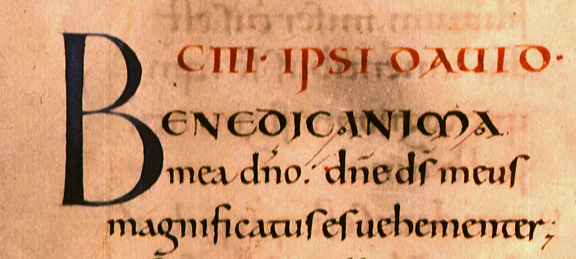 CIII· IPSI DAUID·
BENEDIC ANIMA
mea dn̄o. dn̄e ds̄ meus
magnificatus es uehementer;